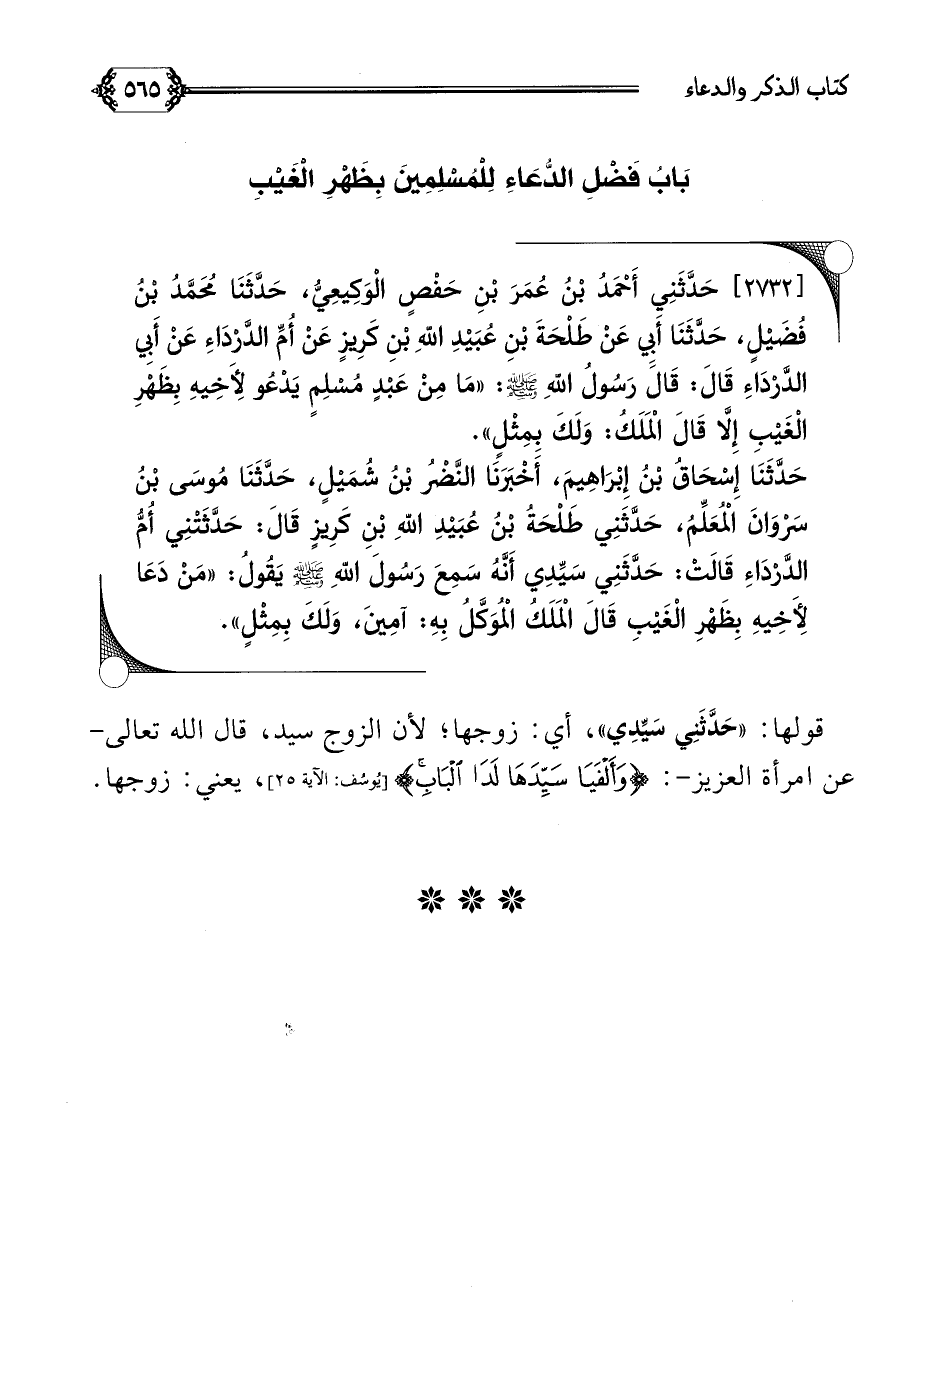 كتاب الذكر والدعاء ٥٦٥
بَابُ فَضْلِ الدُّعَاءِ لِلْمُسْلِمِينَ بِظَهْرِ الْغَيْبِ
[٢٧٣٢] حَدَّثَنِي أَحْمَدُ بْنُ عُمَرَ بْنِ حَفْصٍ الْوَكِيعِيُّ، حَدَّثَنَا مُحَمَّدُ بْنُ
فُضَيْلٍ، حَدَّثَنَا أَبِي عَنْ طَلْحَةَ بْنِ عُبَيْدِ اللهِ بْنِ كَرِيزٍ عَنْ أُمِّ الدَّرْدَاءِ عَنْ أَبِي
الدَّرْدَاءِ قَالَ: قَالَ رَسُولُ اللهِ ﷺ: «مَا مِنْ عَبْدٍ مُسْلِمٍ يَدْعُو لِأَخِيهِ بِظَهْرِ
الْغَيْبِ إِلَّا قَالَ الْمَلَكُ: وَلَكَ بِمِثْلٍ».
حَدَّثَنَا إِسْحَاقُ بْنُ إِبْرَاهِيمَ، أَخْبَرَنَا النَّضْرُ بْنُ شُمَيْلٍ، حَدَّثَنَا مُوسَى بْنُ
سَرْوَانَ الْمُعَلِّمُ، حَدَّثَنِي طَلْحَةُ بْنُ عُبَيْدِ اللهِ بْنِ كَرِيزٍ قَالَ: حَدَّثَتْنِي أُمُّ
الدَّرْدَاءِ قَالَتْ: حَدَّثَنِي سَيِّدِي أَنَّهُ سَمِعَ رَسُولَ اللهِ ﷺ يَقُولُ: «مَنْ دَعَا
لِأَخِيهِ بِظَهْرِ الْغَيْبِ قَالَ الْمَلَكُ الْمُوَكَّلُ بِهِ: آمِينَ، وَلَكَ بِمِثْلٍ».
قولها: «حَدَّثَنِي سَيِّدِي»، أي: زوجها؛ لأن الزوج سيد، قال الله تعالى-
عن امرأة العزيز-: ﴿وَأَلْفَيَا سَيِّدَهَا لَدَا ٱلْبَابِۚ﴾ [يُوسُف: الآية ٢٥]، يعني: زوجها.